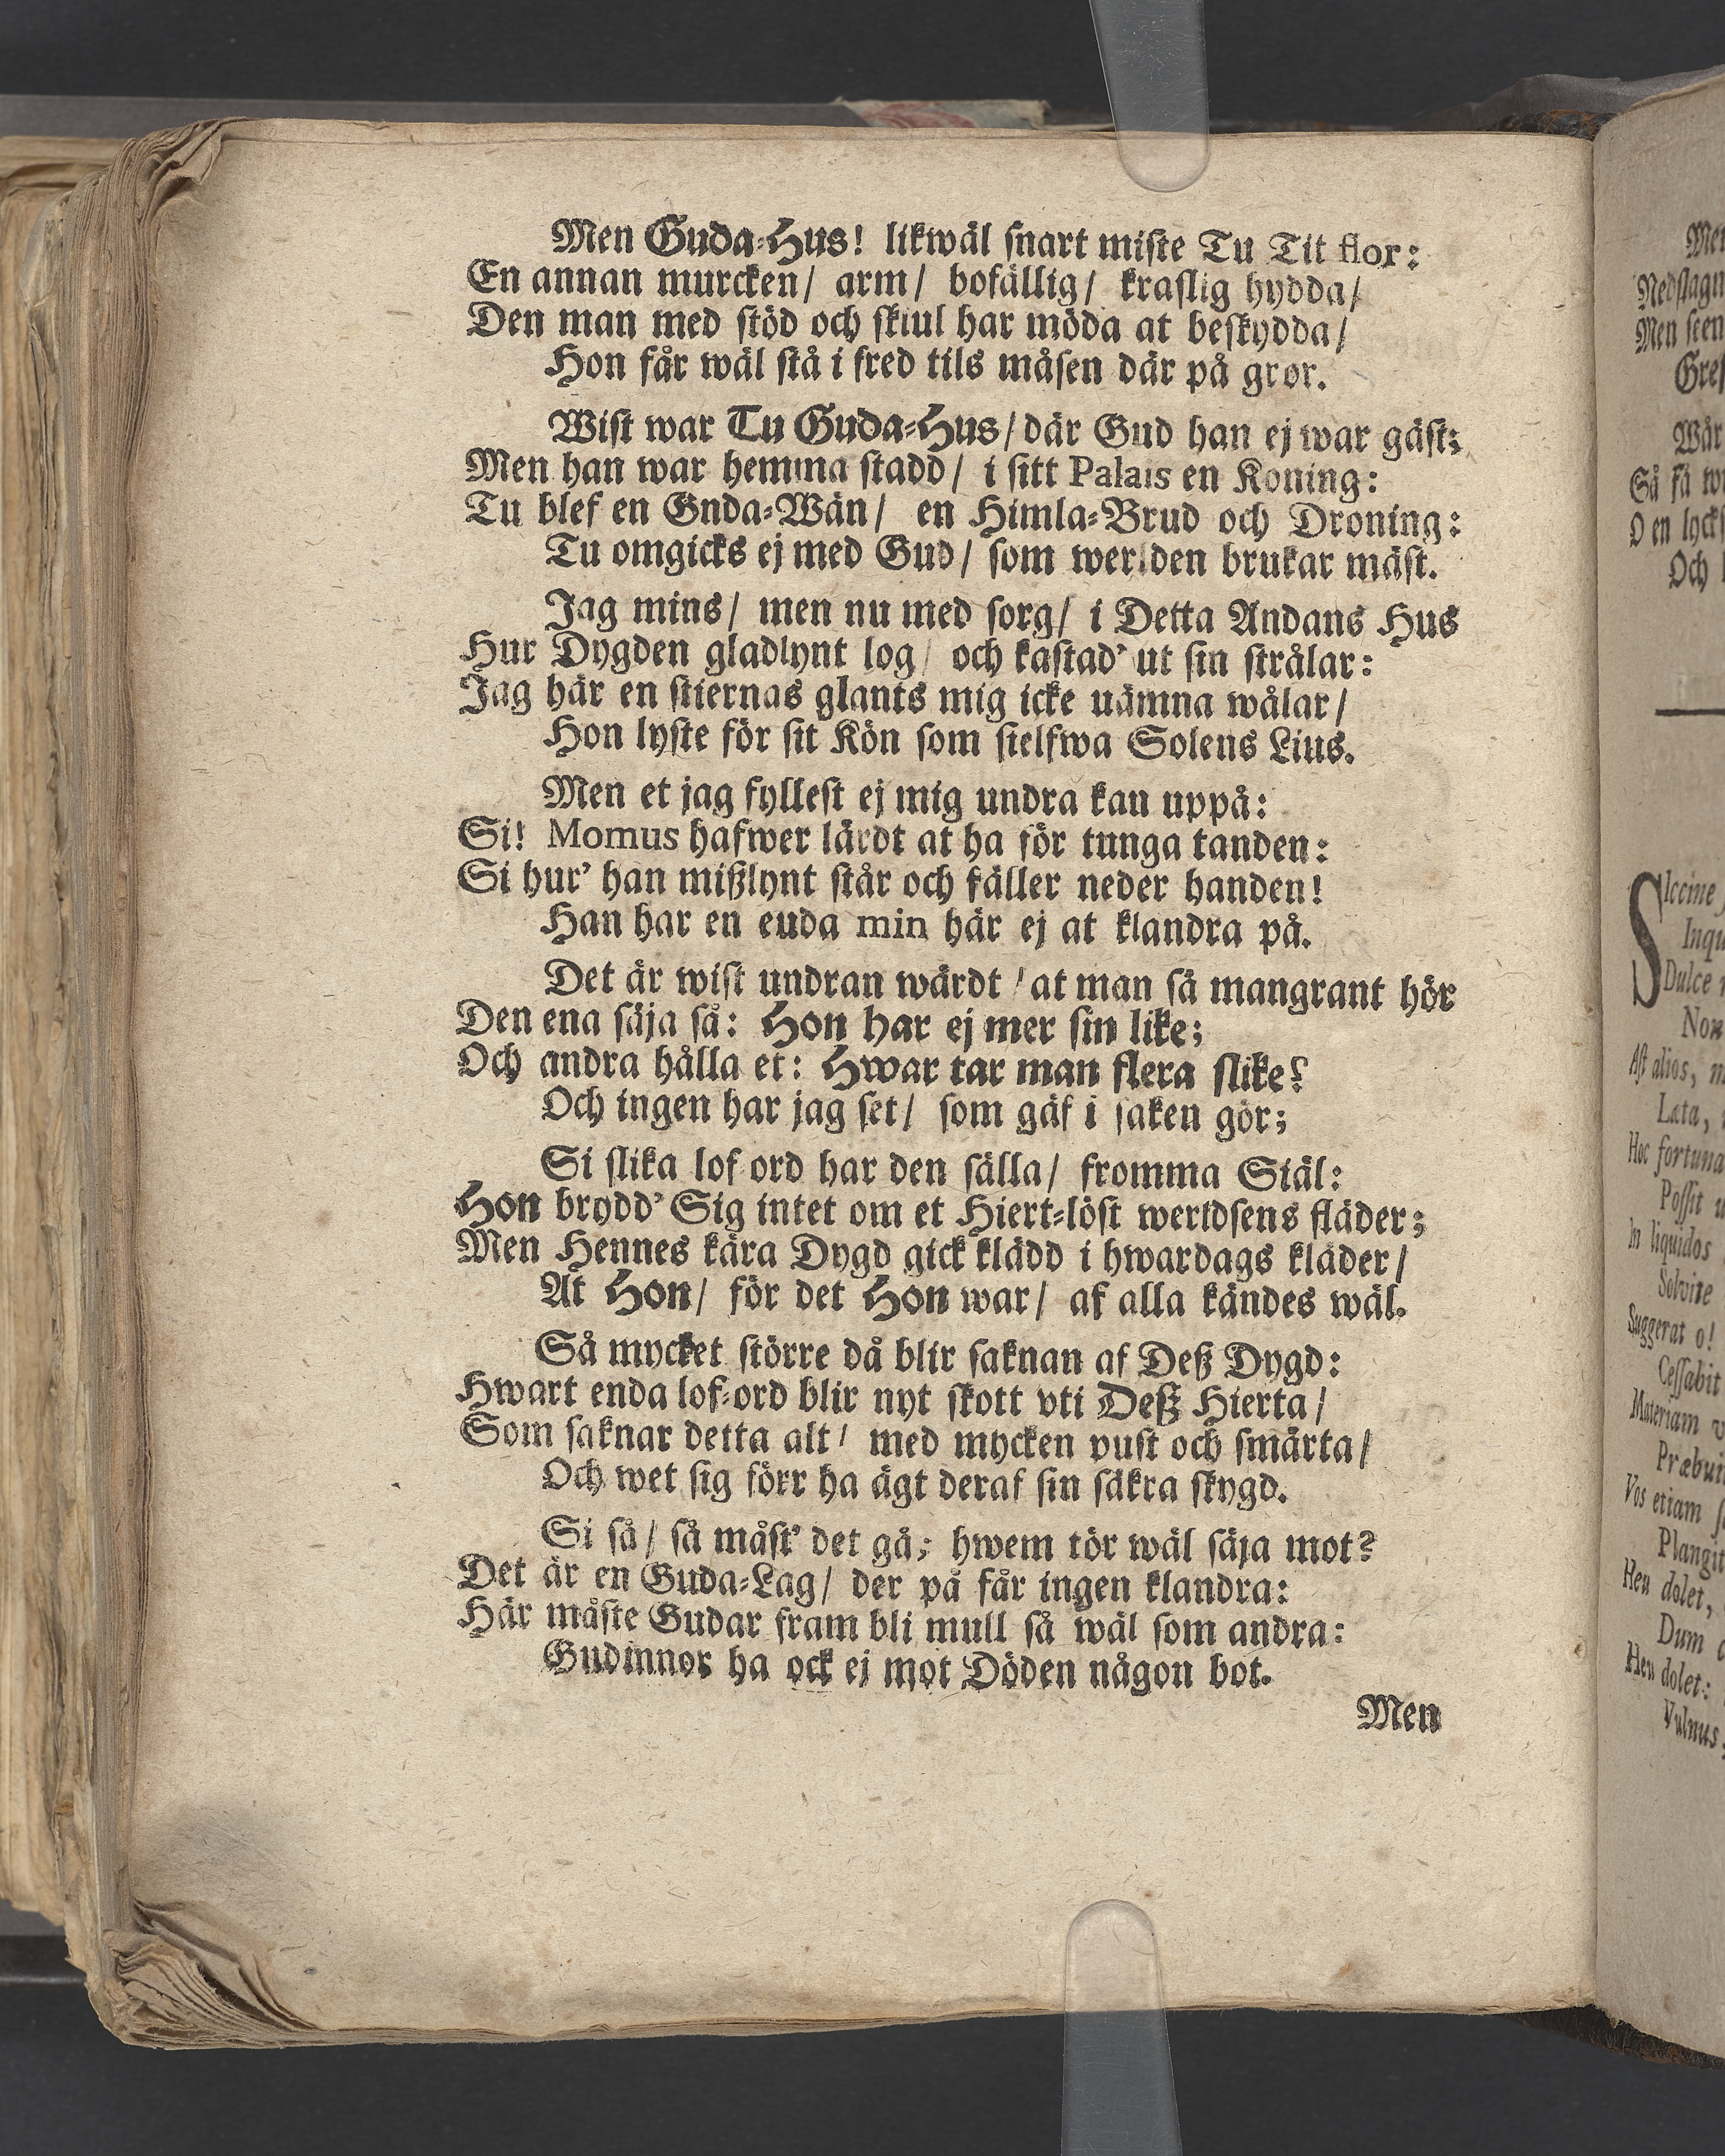 Men Guda-Hus! likwäl snart miste Tu Tit flor:
En annan murcken/ arm/ bofällig/ kraslig hydda/
Den man med stöd och skiul har möda at beskydda/
Hon får wäl stå i fred tils måsen där på gror.
Wist war Tu Guda-Hus/ där Gud han ej war gäst;
Men han war hemma stadd/ i sitt Palais en Koning:
Tu blef en Gnda-Wän/ en Himla-Brud och Droning:
Tu omgicks ej med Gud/ som werlden brukar mäst.
Jag mins/ men nu med sorg/ i Detta Andans Hus
Hur Dygden gladlynt log/ och kastad' ut sin strålar:
Jag här en stiernas glants mig icke uämna wålar/
Hon lyste för sit Kön som sielfwa Solens Lius.
Men et jag fyllest ej mig undra kau uppå:
Si! Momus hafwer lärdt at ha för tunga tanden:
Si hur' han mißlynt står och fäller neder handen!
Han har en euda min här ej at klandra på.
Det är wist undran wärdt/ at man så mangrant hör
Den ena säja så: Hon har ej mer sin like;
Och andra hålla et: Hwar tar man flera slike?
Och ingen har jag set/ som gäf i saken gör;
Si slika lof-ord har den sälla/ fromma Siäl:
Hon brydd' Sig intet om et Hiert-löst werldsens fläder;
Men Hennes kära Dygd gick klädd i hwardags kläder/
At Hon/ för det Hon war/ af alla kändes wäl.
Så mycket större då blir saknan af Deß Dygd:
Hwart enda lof-ord blir nyt skott vti Deß Hierta/
Som saknar detta alt/ med mycken pust och smärta/
Och wet sig förr ha ägt deraf sin säkra skygd.
Si så/ så måst' det gå; hwem tör wäl säja mot?
Det är en Guda-Lag/ der på får ingen klandra:
Här måste Gudar fram bli mull så wäl som andra:
Gudinnor ha ock ej mot Döden någon bot.
Men